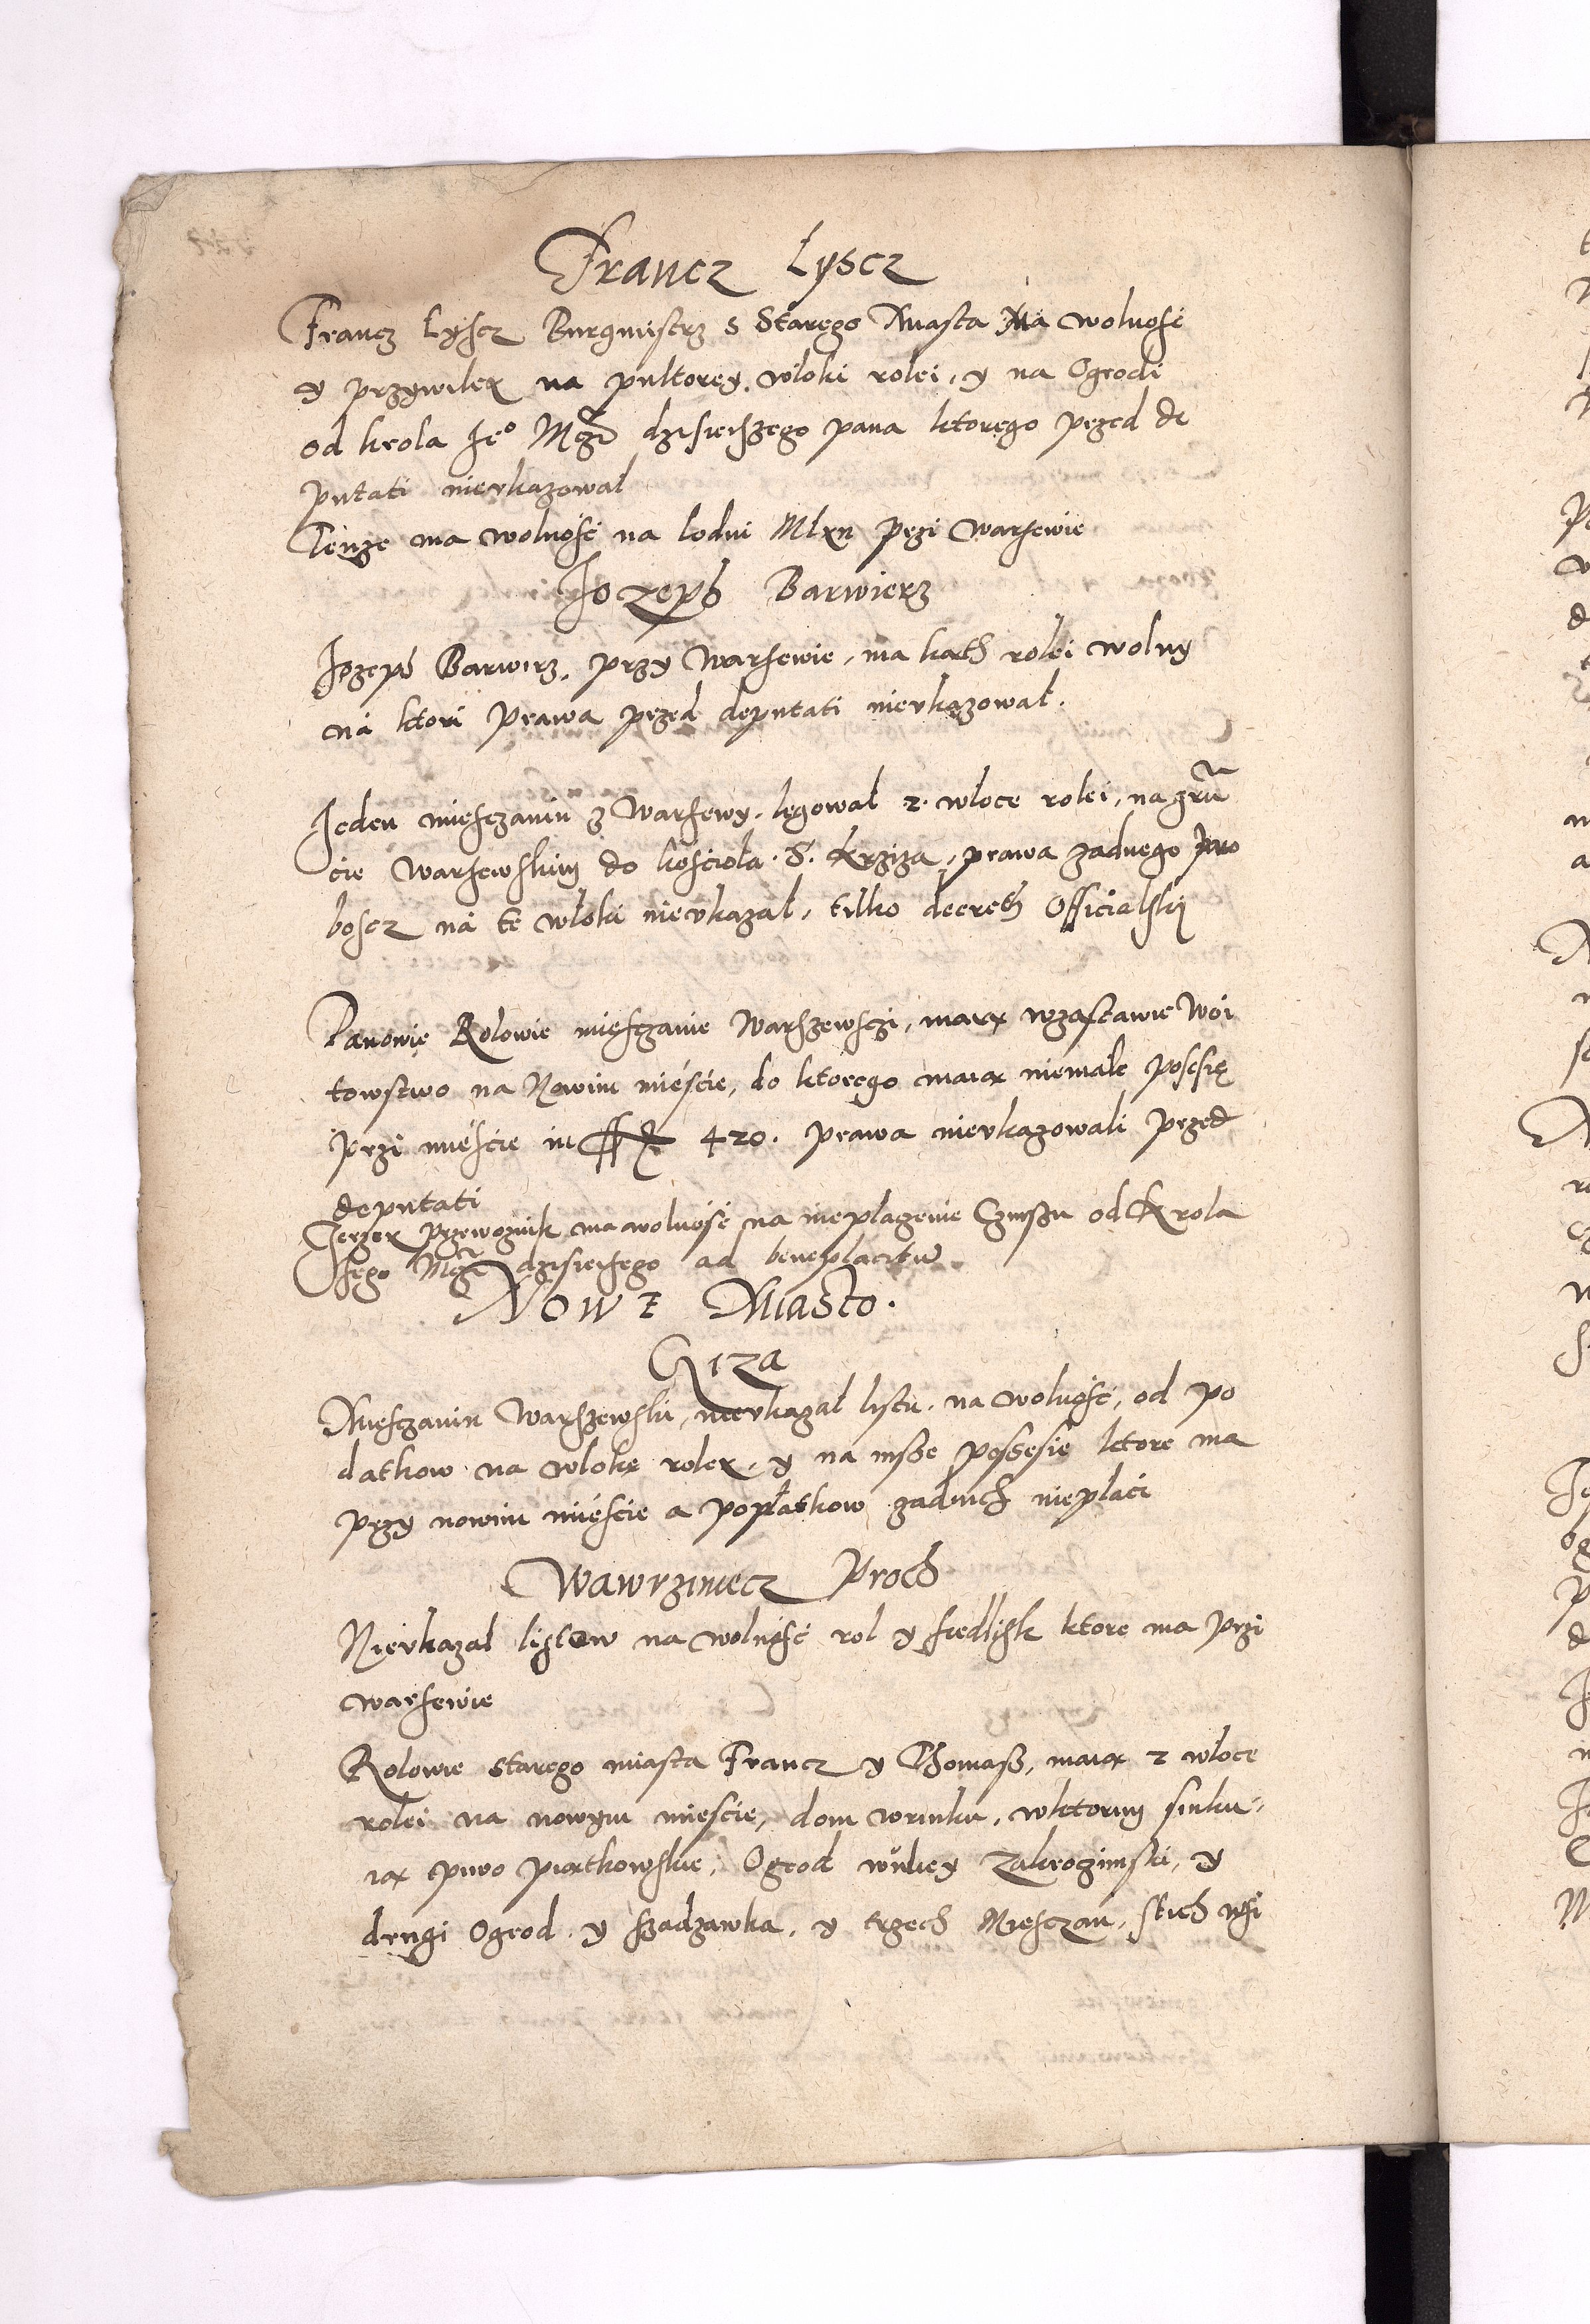 Francz Łyscz
Francz Łyscz Burgmistrz s Starego Miasta Ma wolność
y przywilei na pułtorey włoki rolei, y na Ogrodi
od krola Je° Mczi dzisieiszego pana ktorego przed de
putati nieukazował
Tenże ma wolność na łodni Mlyn przi Warsewie
Jozeph Barwierz
Jozeph Barwirz, przy Warsewie, ma kath rolei wolny
na ktori prawa przed deputati nieukazował.
Jeden miesczanin z Warsewy, legował 2. włoce rolei, na gru
cie Warsewskim do kościoła S. Krziża, prawa żadnego pro
boscz na te włoki nieukazał, tilko decreth Officialski
Panowie Rolowie miesczanie Warszewsczi, maią wzastawie Woi
towstwo na Nowim mieście, do ktorego maią niemałe posesię
przi mieście in 420. prawa nieukazowali przed
deputati
Jerzer Przewoznik ma wolność na nieplazenie Czinszu od Krola
Jego Mczi dzisieisego ad beneplacitu
NOWE Miasto.
Giza
Miesczanin Warszewski, nieukazał listu na wolność, od po
datkow na włokę rolei, y na insze possesie ktore ma
przy nowim mieście a popłatkow żadnich niepłaci
Wawrziniecz Proch
Nieukazał listow na wolność rol y siedlisk ktore ma przi
warsewie
Rolowie starego miasta Francz y Thomasz, maią 2 włoce
rolei na nowym mieście, dom wrinku, wktorim sinku-
ią piwo piątkowskie, Ogrod wulicy Zakrogimski, y
drugi Ogrod y szadzawka, y trzech Miesczan, stich wsi